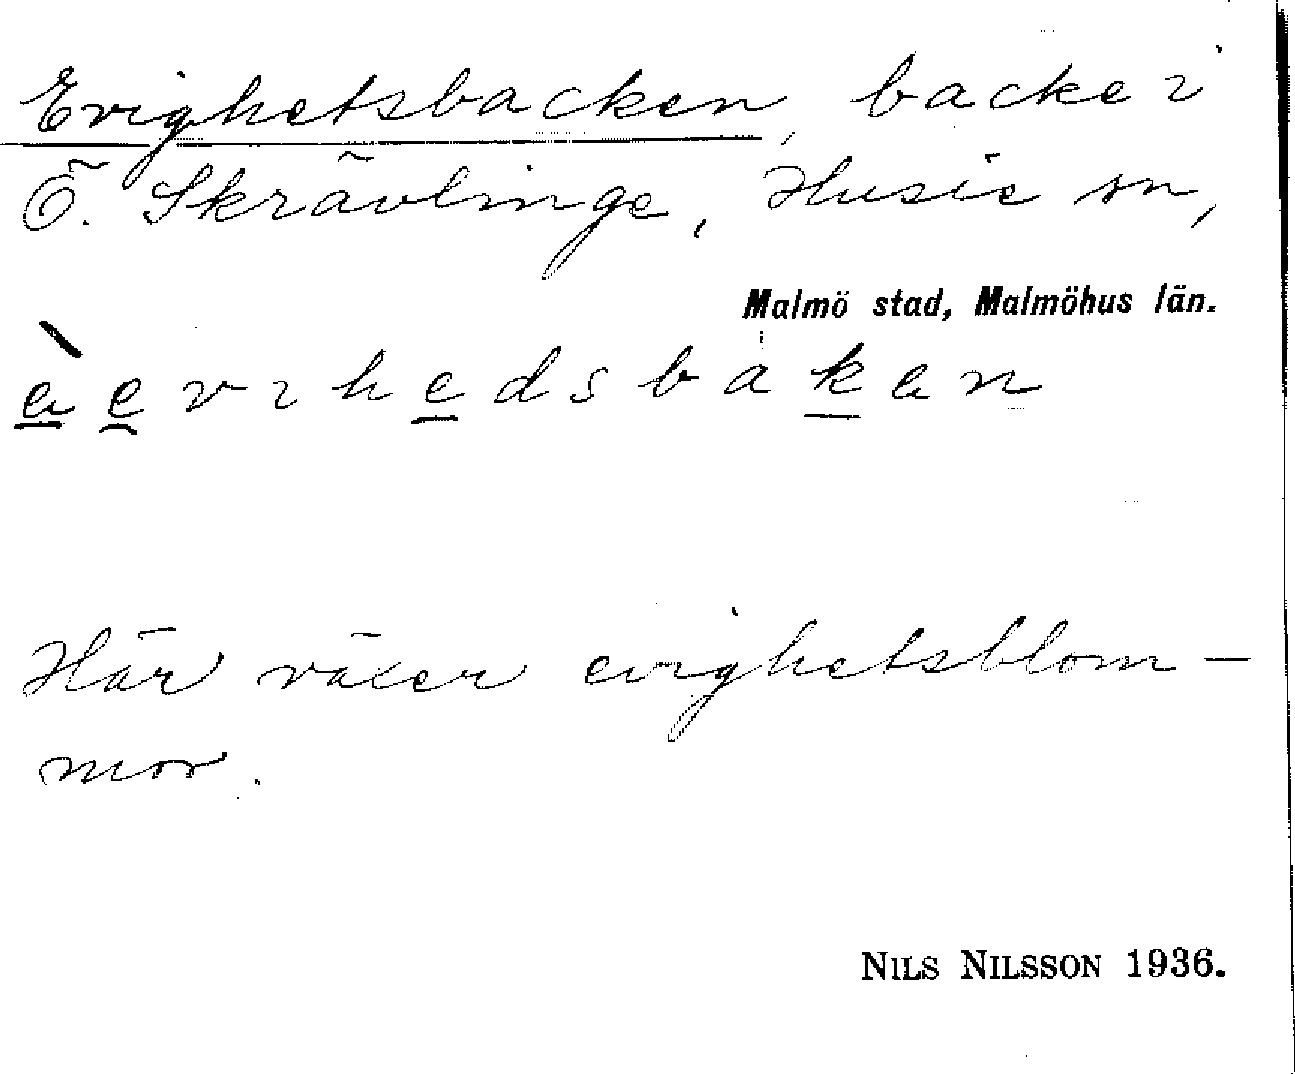 Evighetsbacken, backe i
Ö. Skrävlinge, Husie sn,
Malmö stad, Malmöhus län.
èevihedsbakan
Här växer evighetsblom-
mor.
NILS NILSSON 1936.